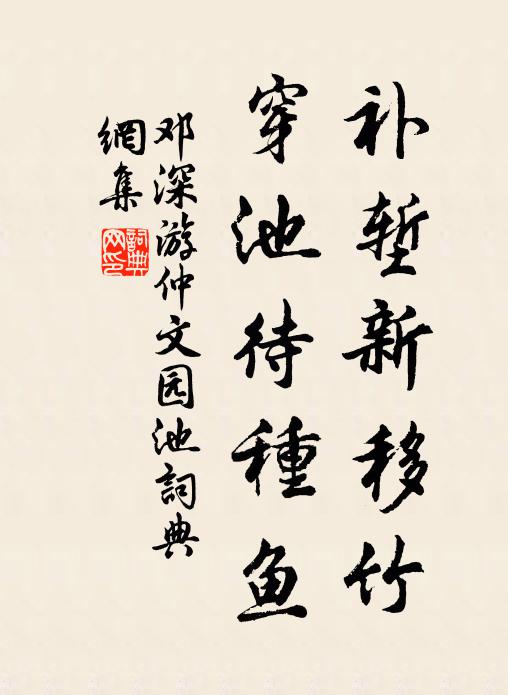 补堑新移竹
穿池待種鱼
邓深游仲文园池詞典
網集
詞典
网印